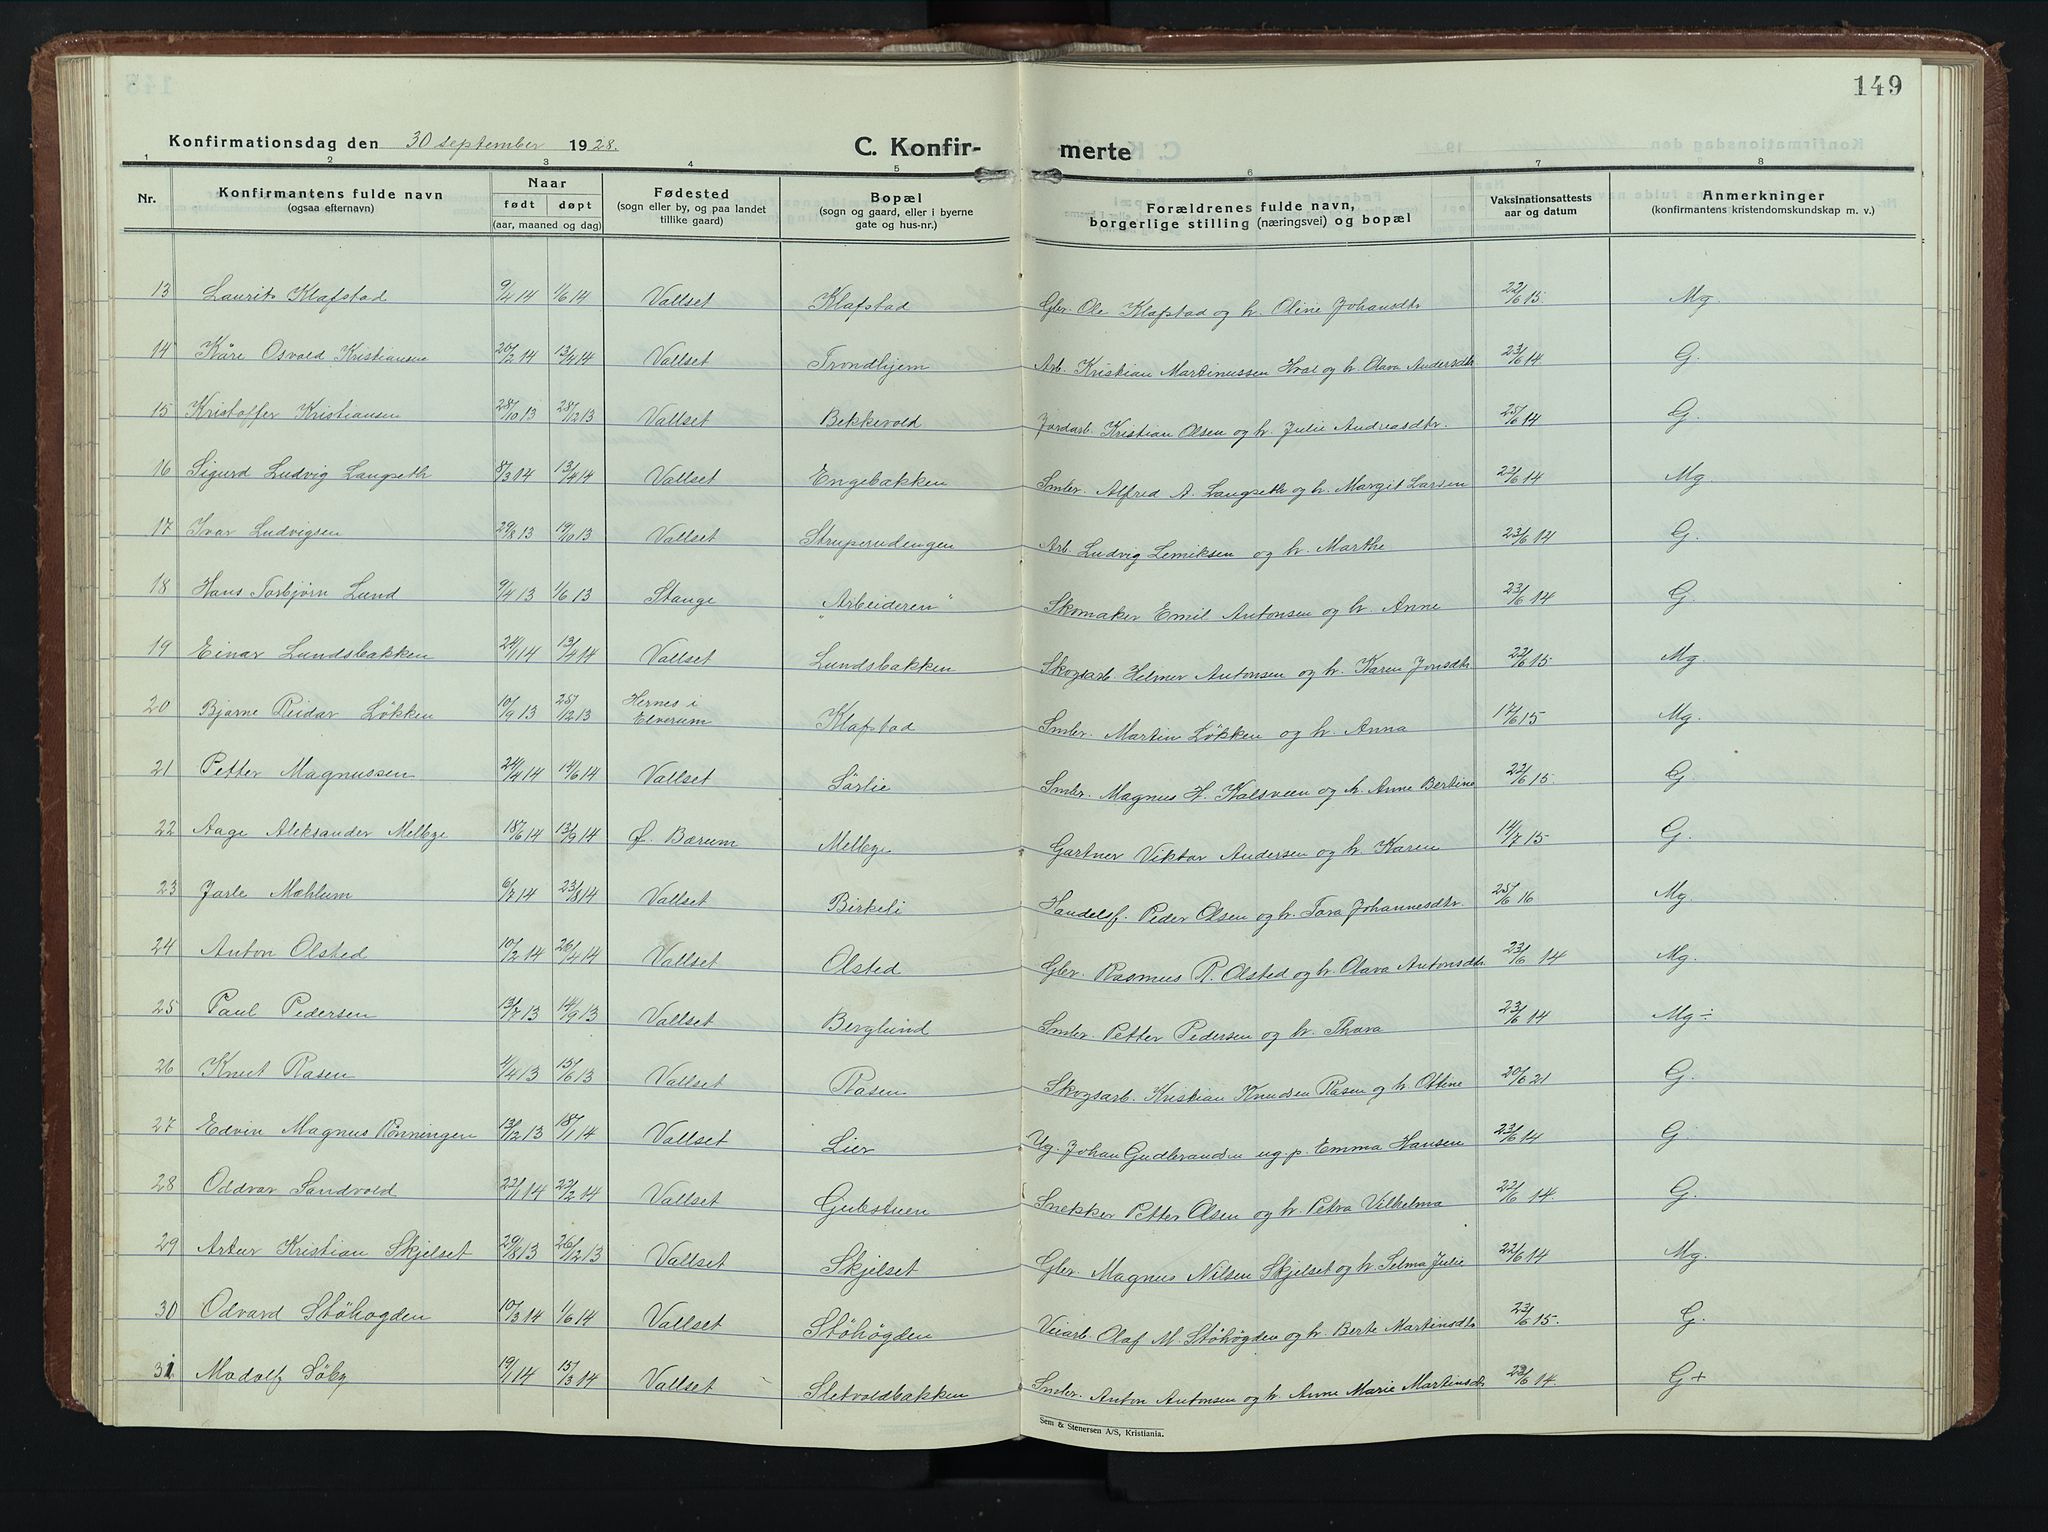 149
Konfirmationsdag den 30 september 1928. C. Konfir- merte
1 2 3 4 5 6 7 8
Nr. Konfirmantens fulde navn (ogsaa efternavn) Naar født døpt (aar, maaned og dag) Fødested (sogn eller by, og paa landet tillike gaard) Bopæl (sogn og gaard, eller i byerne gate og hus-nr.) Forældrenes fulde navn, borgerlige stilling (næringsvei) og bopæl Vaksinationsattests aar og datum Anmerkninger (konfirmantens kristendomskundskap m. v.)
13 Laurits Klafstad 9/4 14 1/6 14 Vallset Klafstad Gbr. Ole Klafstad og h. Oline Johansdtr 22/6 15. Mg.
14 Kåre Osvald Kristiansen 20/2 14 13/4 14 Vallset Trondhjem Arb. Kristian Martinussen Hval og h. Olava Andersdtr 23/6 14 G.
15 Kristoffer Kristiansen 28/10 13 28/12 13 Vallset Bekkevold Jordarb. Kristian Olsen og h. Julie Andreasdtr. 25/6 14 G.
16 Sigurd Ludvig Langseth 8/3 14 13/4 14 Vallset Engebakken Smbr. Alfred A. Langseth og h. Margit Larsen 22/6 14 Mg.
17 Ivar Ludvigsen 29/8 13 19/10 13 Vallset Struperudengen Arb. Ludvig Lemiksen og h. Marthe 23/6 14 G.
18 Hans Torbjørn Lund 9/4 13 1/6 13 Stange "Arbeideren" Skomaker Emil Antonsen og h. Anne 23/6 14 G.
19 Einar Lundsbakken 24/1 14 13/4 14 Vallset Lundsbakken Skogsarb. Helmer Antonsen og h. Karen Jonsdtr 22/6 15. Mg.
20 Bjarne Reidar Løkken 10/9 13 25/12 13 Hernes i Elverum Klafstad Smbr. Martin Løkken og h. Anna 17/6 15 Mg.
21 Petter Magnussen 24/4 14 14/6 14 Vallset Sørlie Smbr. Magnus H. Kalsveen og h. Anne Bertine 22/6 15. G.
22 Aage Aleksander Melbye 18/6 14 13/9 14 Ø. Bærum Melbye Gartner Viktor Andersen og h. Karen 14/7 15 G.
23 Jarle Mæhlum 6/7 14 23/8 14 Vallset Birkeli Handelsf. Peder Olsen og h. Tora Johannesdtr. 25/6 16 Mg.
24 Anton Olsted 10/2 14 26/4 14 Vallset Olsted Gbr. Rasmus P. Olsted og h. Olava Antonsdtr. 23/6 14 Mg.
25 Paul Pedersen 13/7 13 14/9 13 Vallset Berglund Smbr. Petter Pedersen og h. Thora 23/6 14 Mg ÷
26 Knut Rasen 4/4 13 15/6 13 Vallset Rasen Skogsarb. Kristian Knudsen Rasen og h. Ottine 20/6 21 G.
27 Edvin Magnus Rønningen 13/12 13 18/1 14 Vallset Lier Ug. Johan Gudbrandsen ug. p. Emma Hansen 23/6 14 G.
28 Oddvar Sandvold 22/1 14 22/2 14 Vallset Gubstuen Snekker Petter Olsen og h. Petra Vilhelma 22/6 14. G.
29 Artur Kristian Skjelset 29/8 13 26/12 13 Vallset Skjelset Gbr. Magnus Nilsen Skjelset og h. Selma Julie 22/6 14 Mg.
30 Odvard Støhøgden 10/3 14 1/6 14 Vallset Støhøgden Veiarb. Olaf M. Støhøgden og h. Berte Martinsdtr 23/6 15. G.
31 Modolf Søby 19/1 14 15/3 14 Vallset Sletvoldbakken Smbr. Anton Antonsen og h. Anne Marie Martinsdtr 23/6 14. G +
Sem & Stenersen A/S, Kristiania.